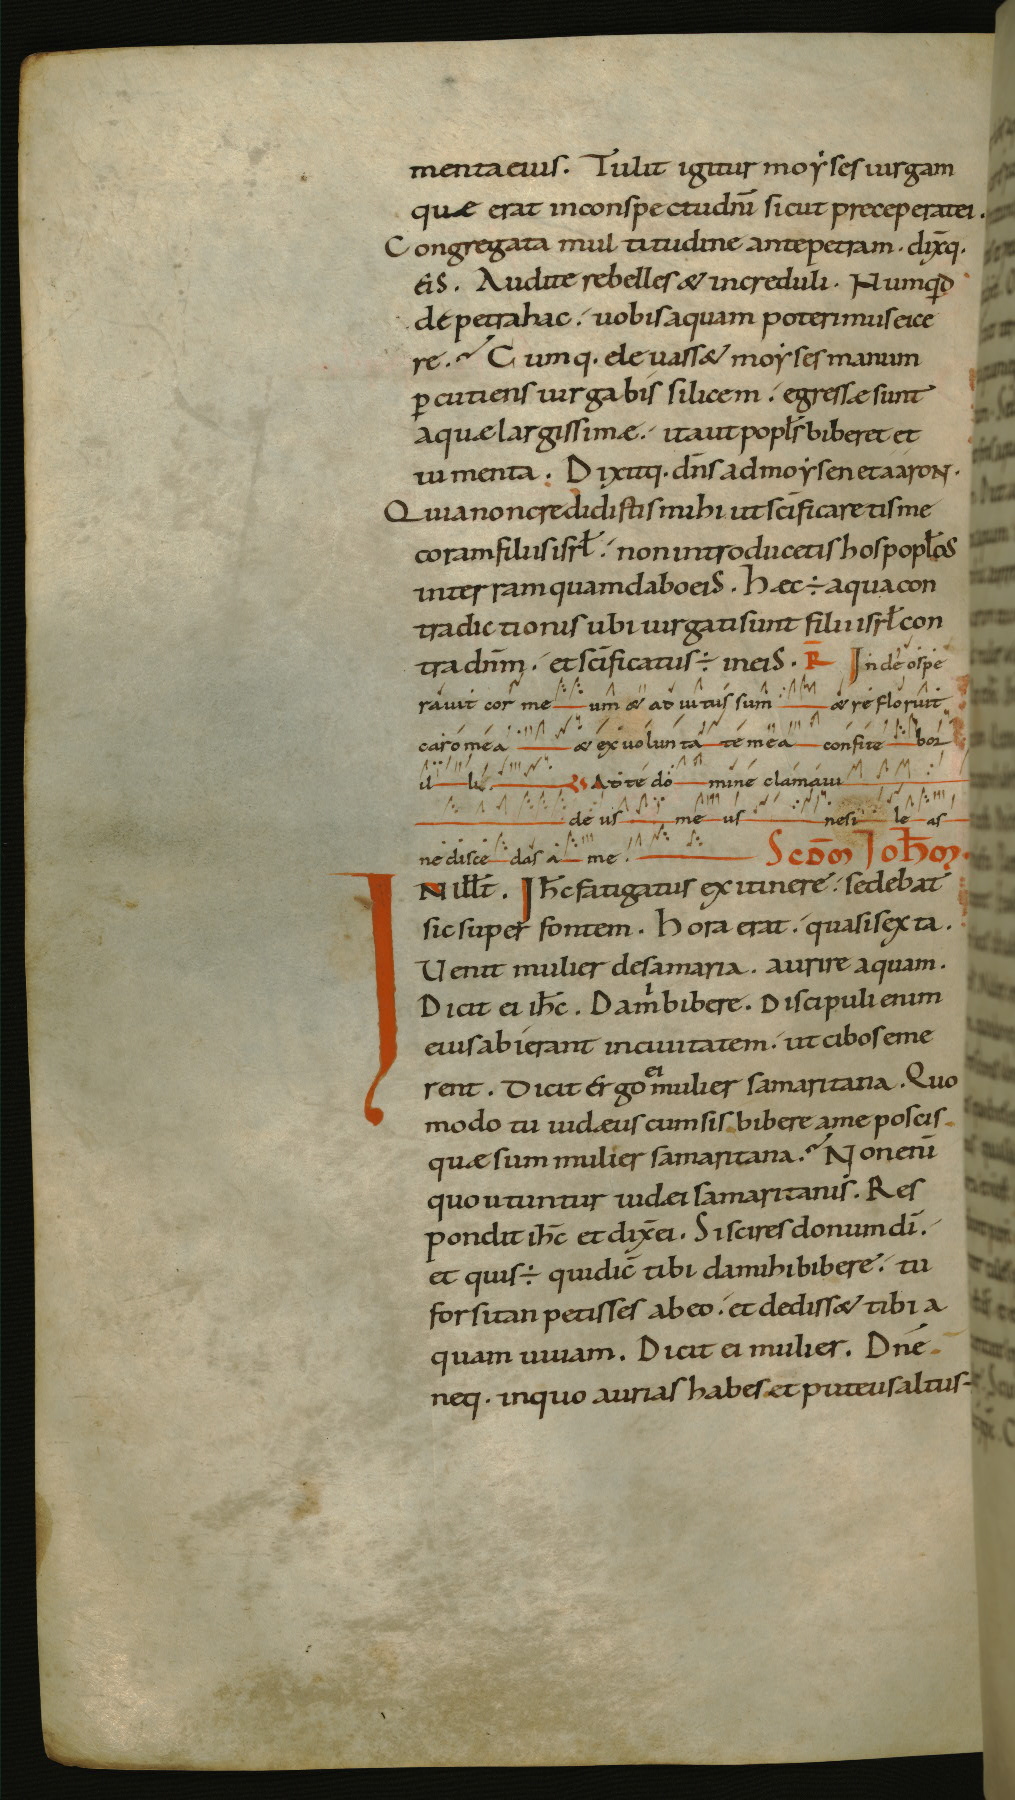 menta eius. Tulit igitur moẏses uirgam
quæ erat inconspectu dn̄i sicut preceperat ei.
Congregata multitudine ante petram. dix̄q.
eis. Audite rebelles & increduli. Numqd̄
de petra hac. uobis aquam poterimus eice
re. Cumq. eleuass& moẏses manum
ꝑcutiens uirga bis silicem. egressæ sunt
aquæ largissimæ. ita ut popl̄s biberet et
iumenta. Dixitq. dn̄s ad moẏsen et aaron.
Quia non credidistis mihi ut sc̄ificaretis me
coram filiis isrl̄. non introducetis hos popl̄os
in terram quam dabo eis. Hæc ÷ aqua con
tradictionis ubi iurgati sunt filii isrl̄ con
tra dn̄m. et sc̄ificatus ÷ in eis. R̄ In deo spe
rauit cor meum & adiutus sum & refloruit
caro mea & ex uoluntate mea confitebor
illi. Ad te domine clamaui
deus meus ne sileas
ne discedas a me. Scd̄m Joh̄m.
IN ill̄t. Ih̄c fatigatus ex itinere. sedebat
sic super fontem. Hora erat. quasi sexta.
Uenit mulier de samaria. aurire aquam.
Dicit ei ih̄c. Da m̍ bibere. Discipuli enim
eius abierant in ciuitatem. ut cibos eme
rent. Dicit ergo ei mulier samaritana. Quo
modo tu iudæus cum sis bibere a me poscis
quæ sum mulier samaritana. Non enī
quoutuntur iudæi samaritanis. Res
pondit ih̄c et dix̄ ei. Si scires donum dī.
et quis ÷ qui dic̄ tibi da mihi bibere. tu
forsitan petisses ab eo. et dediss& tibi a
quam uiuam. Dicit ei mulier. Dn̄e
neq. in quo aurias habes et puteus altus